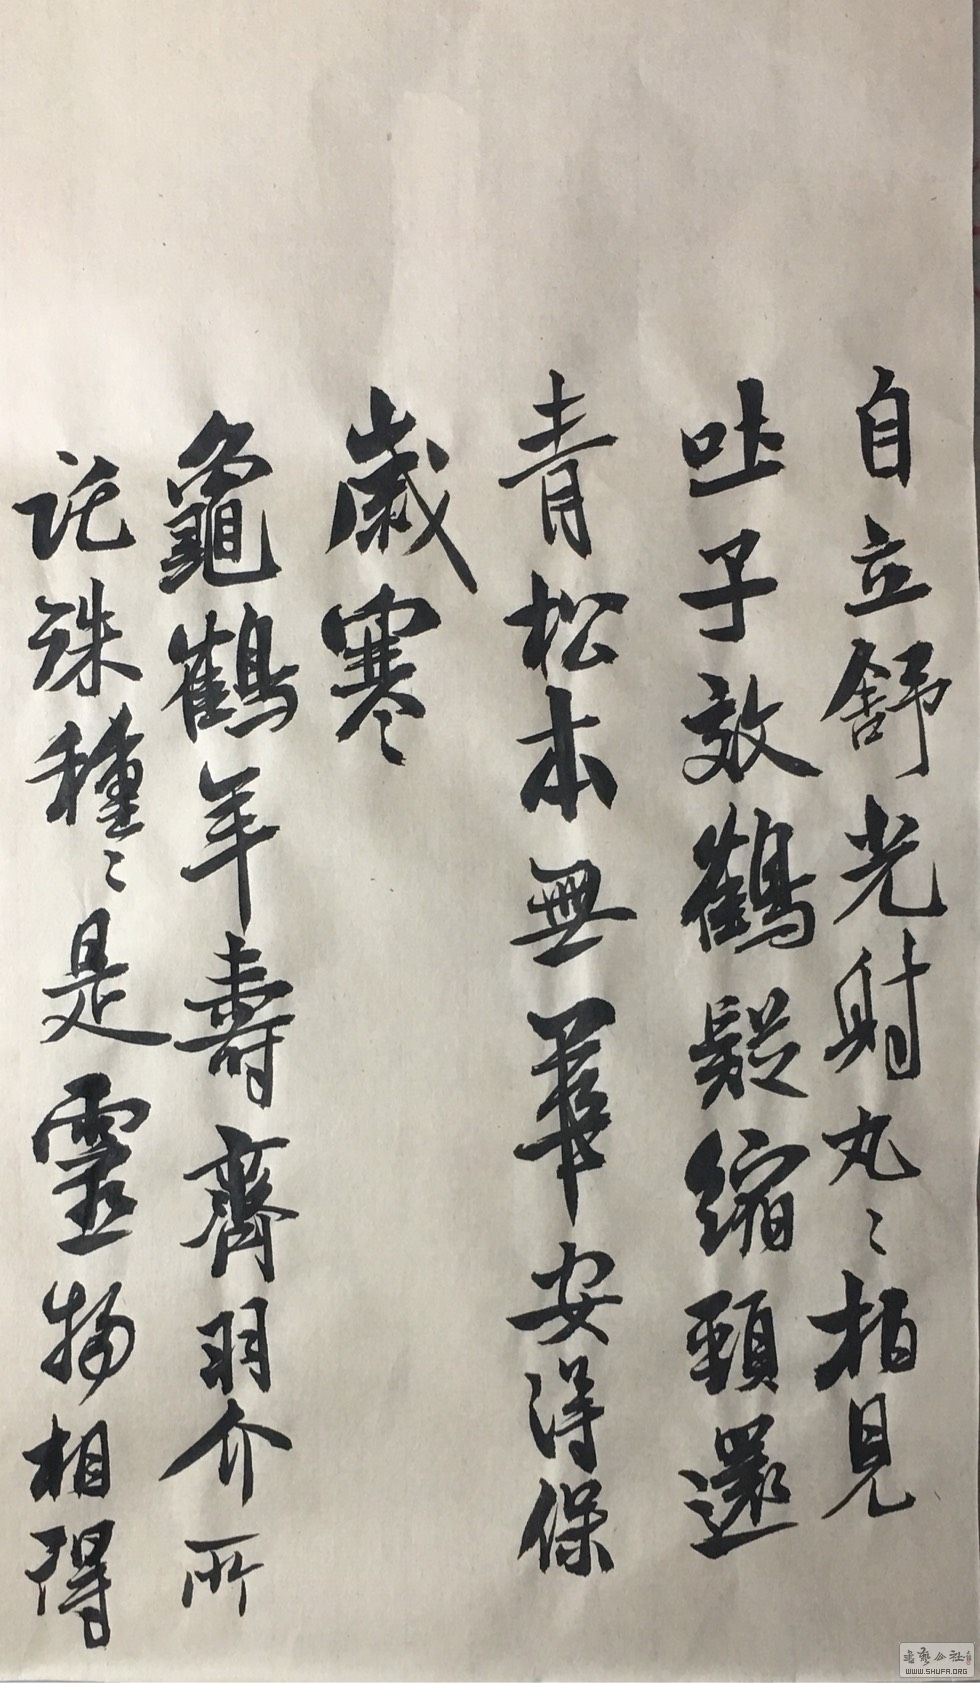 自立舒光射丸〻柏見
吐子效鶴疑縮頸還
青松本無華安得保
歲寒
龜鶴年壽齊羽介所
託殊種〻是靈物相得
書藝公社
WWW.SHUFA.ORG